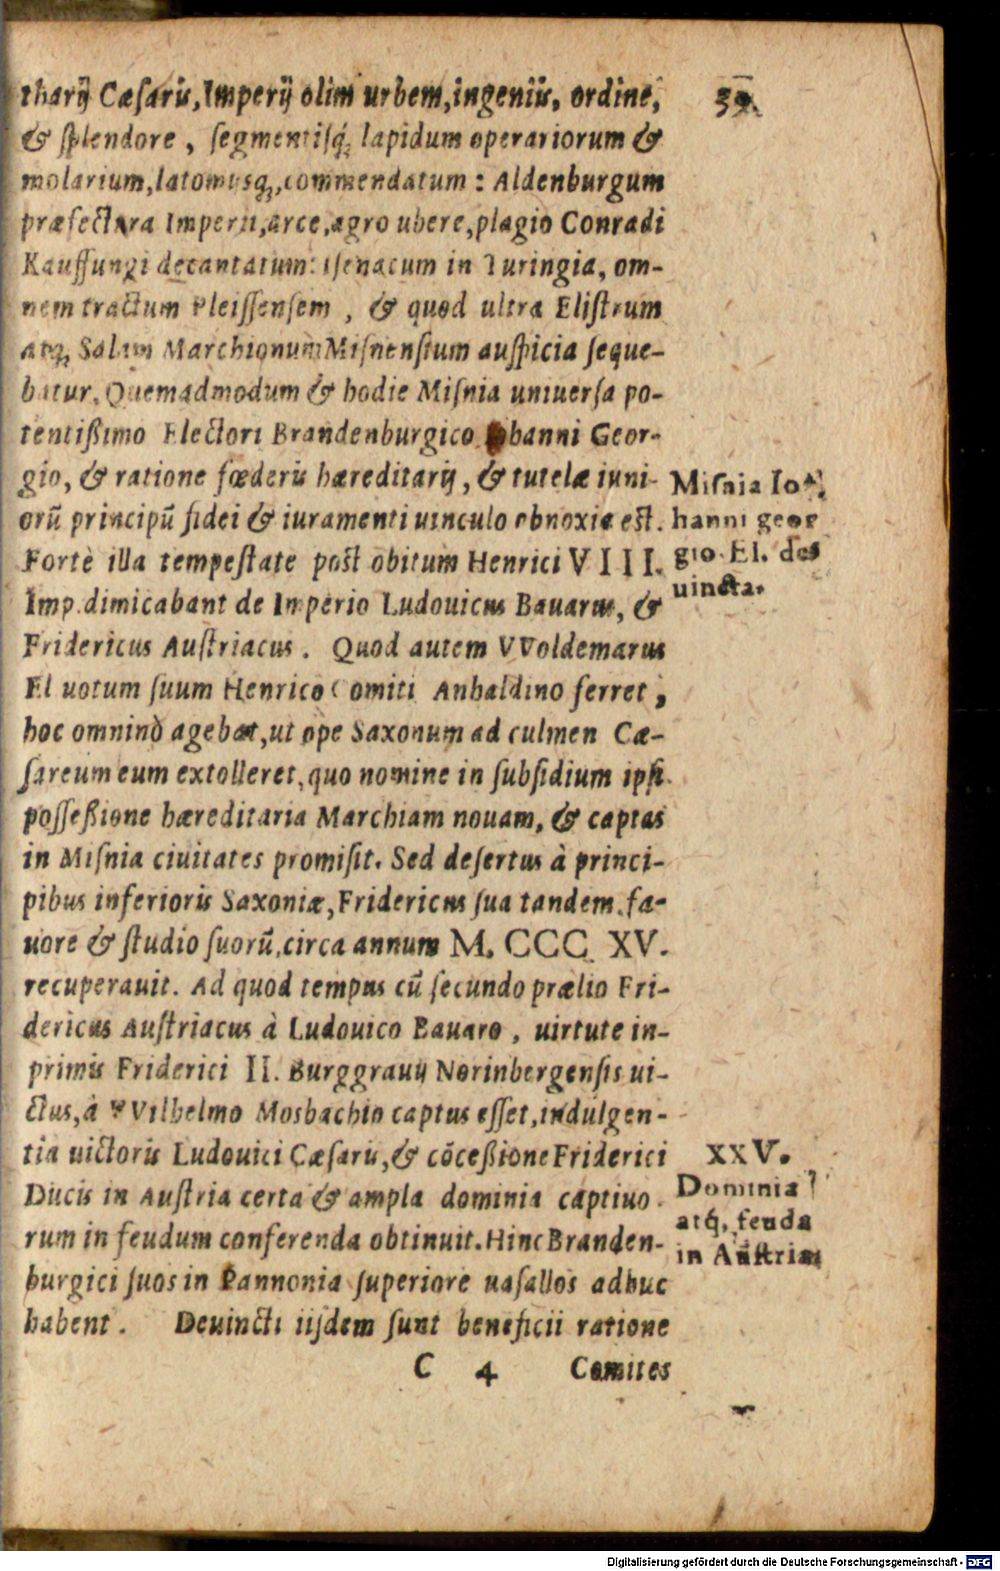 39.
tharij Cæsaris, Imperij olim urbem, ingeniis, ordine,
& splendore, segmentisq́; lapidum operariorum &
molarium, latomysq;, commendatum: Aldenburgum
præfectura Imperii, arce, agro ubere, plagio Conradi
Kauffungi decantatum: Isenacum in Turingia, om-
nem tractum Pleissensem, & quod ultra Elistrum
atq; Salam Marchionum Misnensium auspicia seque-
batur. Quemadmodum & hodie Misnia uniuersa po-
tentißimo Electori Brandenburgico Iohanni Geor-
gio, & ratione fœderis hæreditarij, & tutelæ iuni-
orū principū fidei & iuramenti uinculo obnoxia est.
Misnia Io-
hanni geor
gio El. de-
uincta.
Fortè illa tempestate post obitum Henrici VIII.
Imp. dimicabant de Imperio Ludouicus Bauarus, &
Fridericus Austriacus. Quod autem VVoldemarus
El uotum suum Henrico Comiti Anhaldino ferret,
hoc omninò agebat, ut ope Saxonum ad culmen Cæ-
sareum eum extolleret, quo nomine in subsidium ipsi
possessione hæreditaria Marchiam nouam, & captas
in Misnia ciuitates promisit. Sed desertus à princi-
pibus inferioris Saxoniæ, Fridericus sua tandem fa-
uore & studio suorū, circa annum M. CCC. XV.
recuperauit. Ad quod tempus cū secundo prælio Fri-
dericus Austriacus à Ludouico Bauaro, uirtute in-
primis Friderici II. Burggrauij Norinbergensis ui-
ctus, à VVilhelmo Mosbachio captus esset, indulgen-
tia uictoris Ludouici Cæsaris, & cōceßione Friderici
Ducis in Austria certa & ampla dominia captiuo-
rum in feudum conferenda obtinuit. Hinc Branden-
burgici suos in Pannonia superiore uasallos adhuc
habent. Deuincti iisdem sunt beneficii ratione
XXV.
Dominia
atq́; feuda
in Austria
C 4 Comites
Digitalisierung gefördert durch die Deutsche Forschungsgemeinschaft - DFG